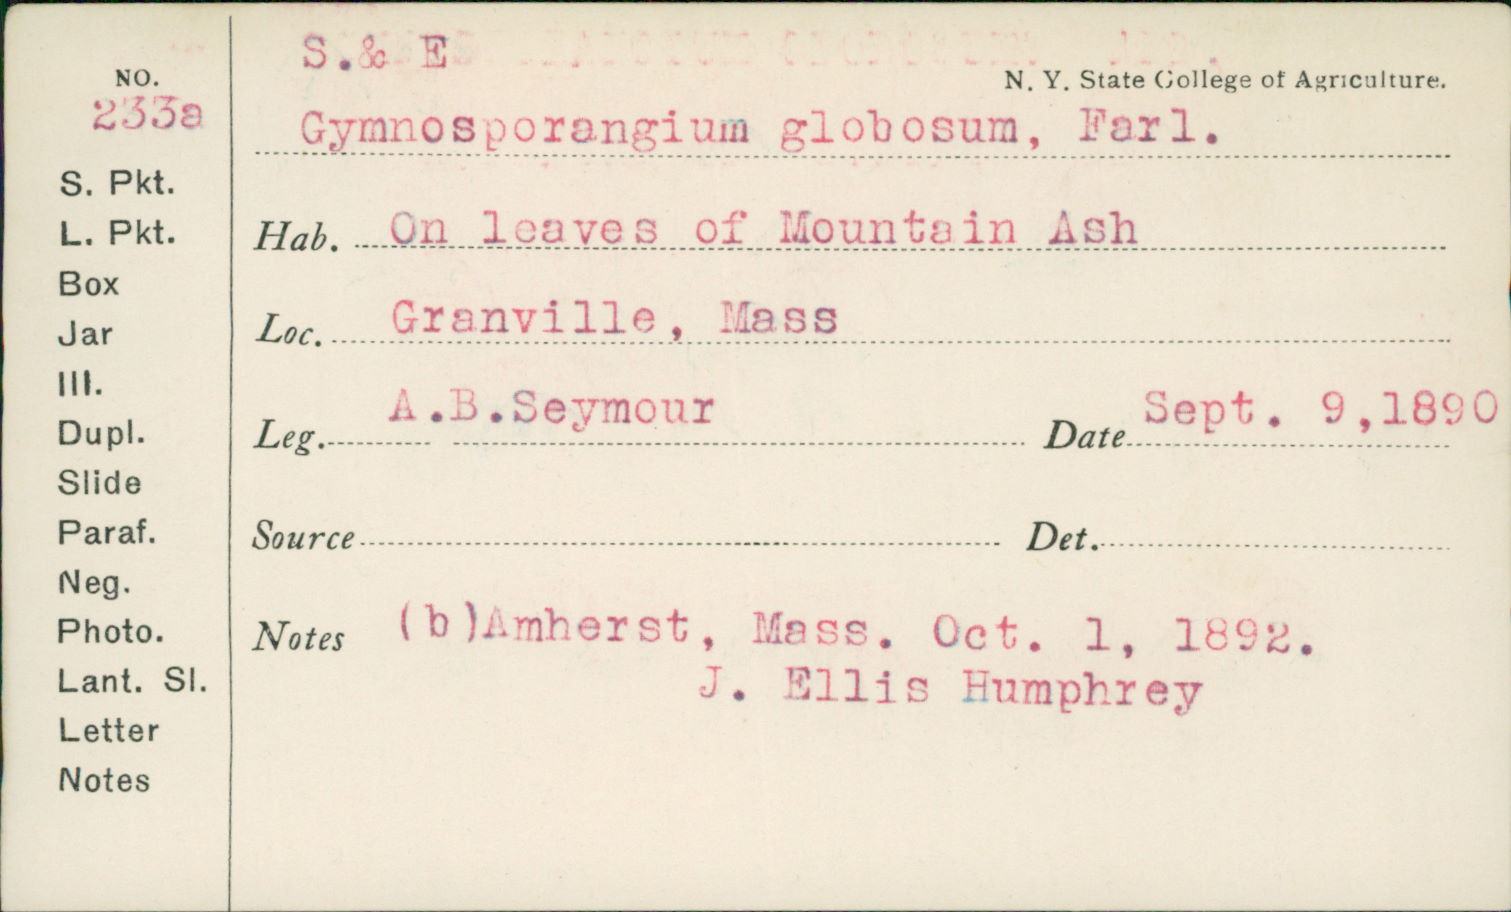 S.& E
NO.
N. Y. State College of Agriculture.
233a
Gymnosporangium globosum, Farl.
S. Pkt.
L. Pkt.
Hab. On leaves of Mountain Ash
Box
Jar
Loc. Granville, Mass
Ill.
Dupl.
Leg. A.B.Seymour Date Sept. 9,1890
Slide
Paraf.
Source Det.
Neg.
Photo.
Notes (b)Amherst, Mass. Oct. 1, 1892.
Lant. Sl.
J. Ellis Humphrey
Letter
Notes